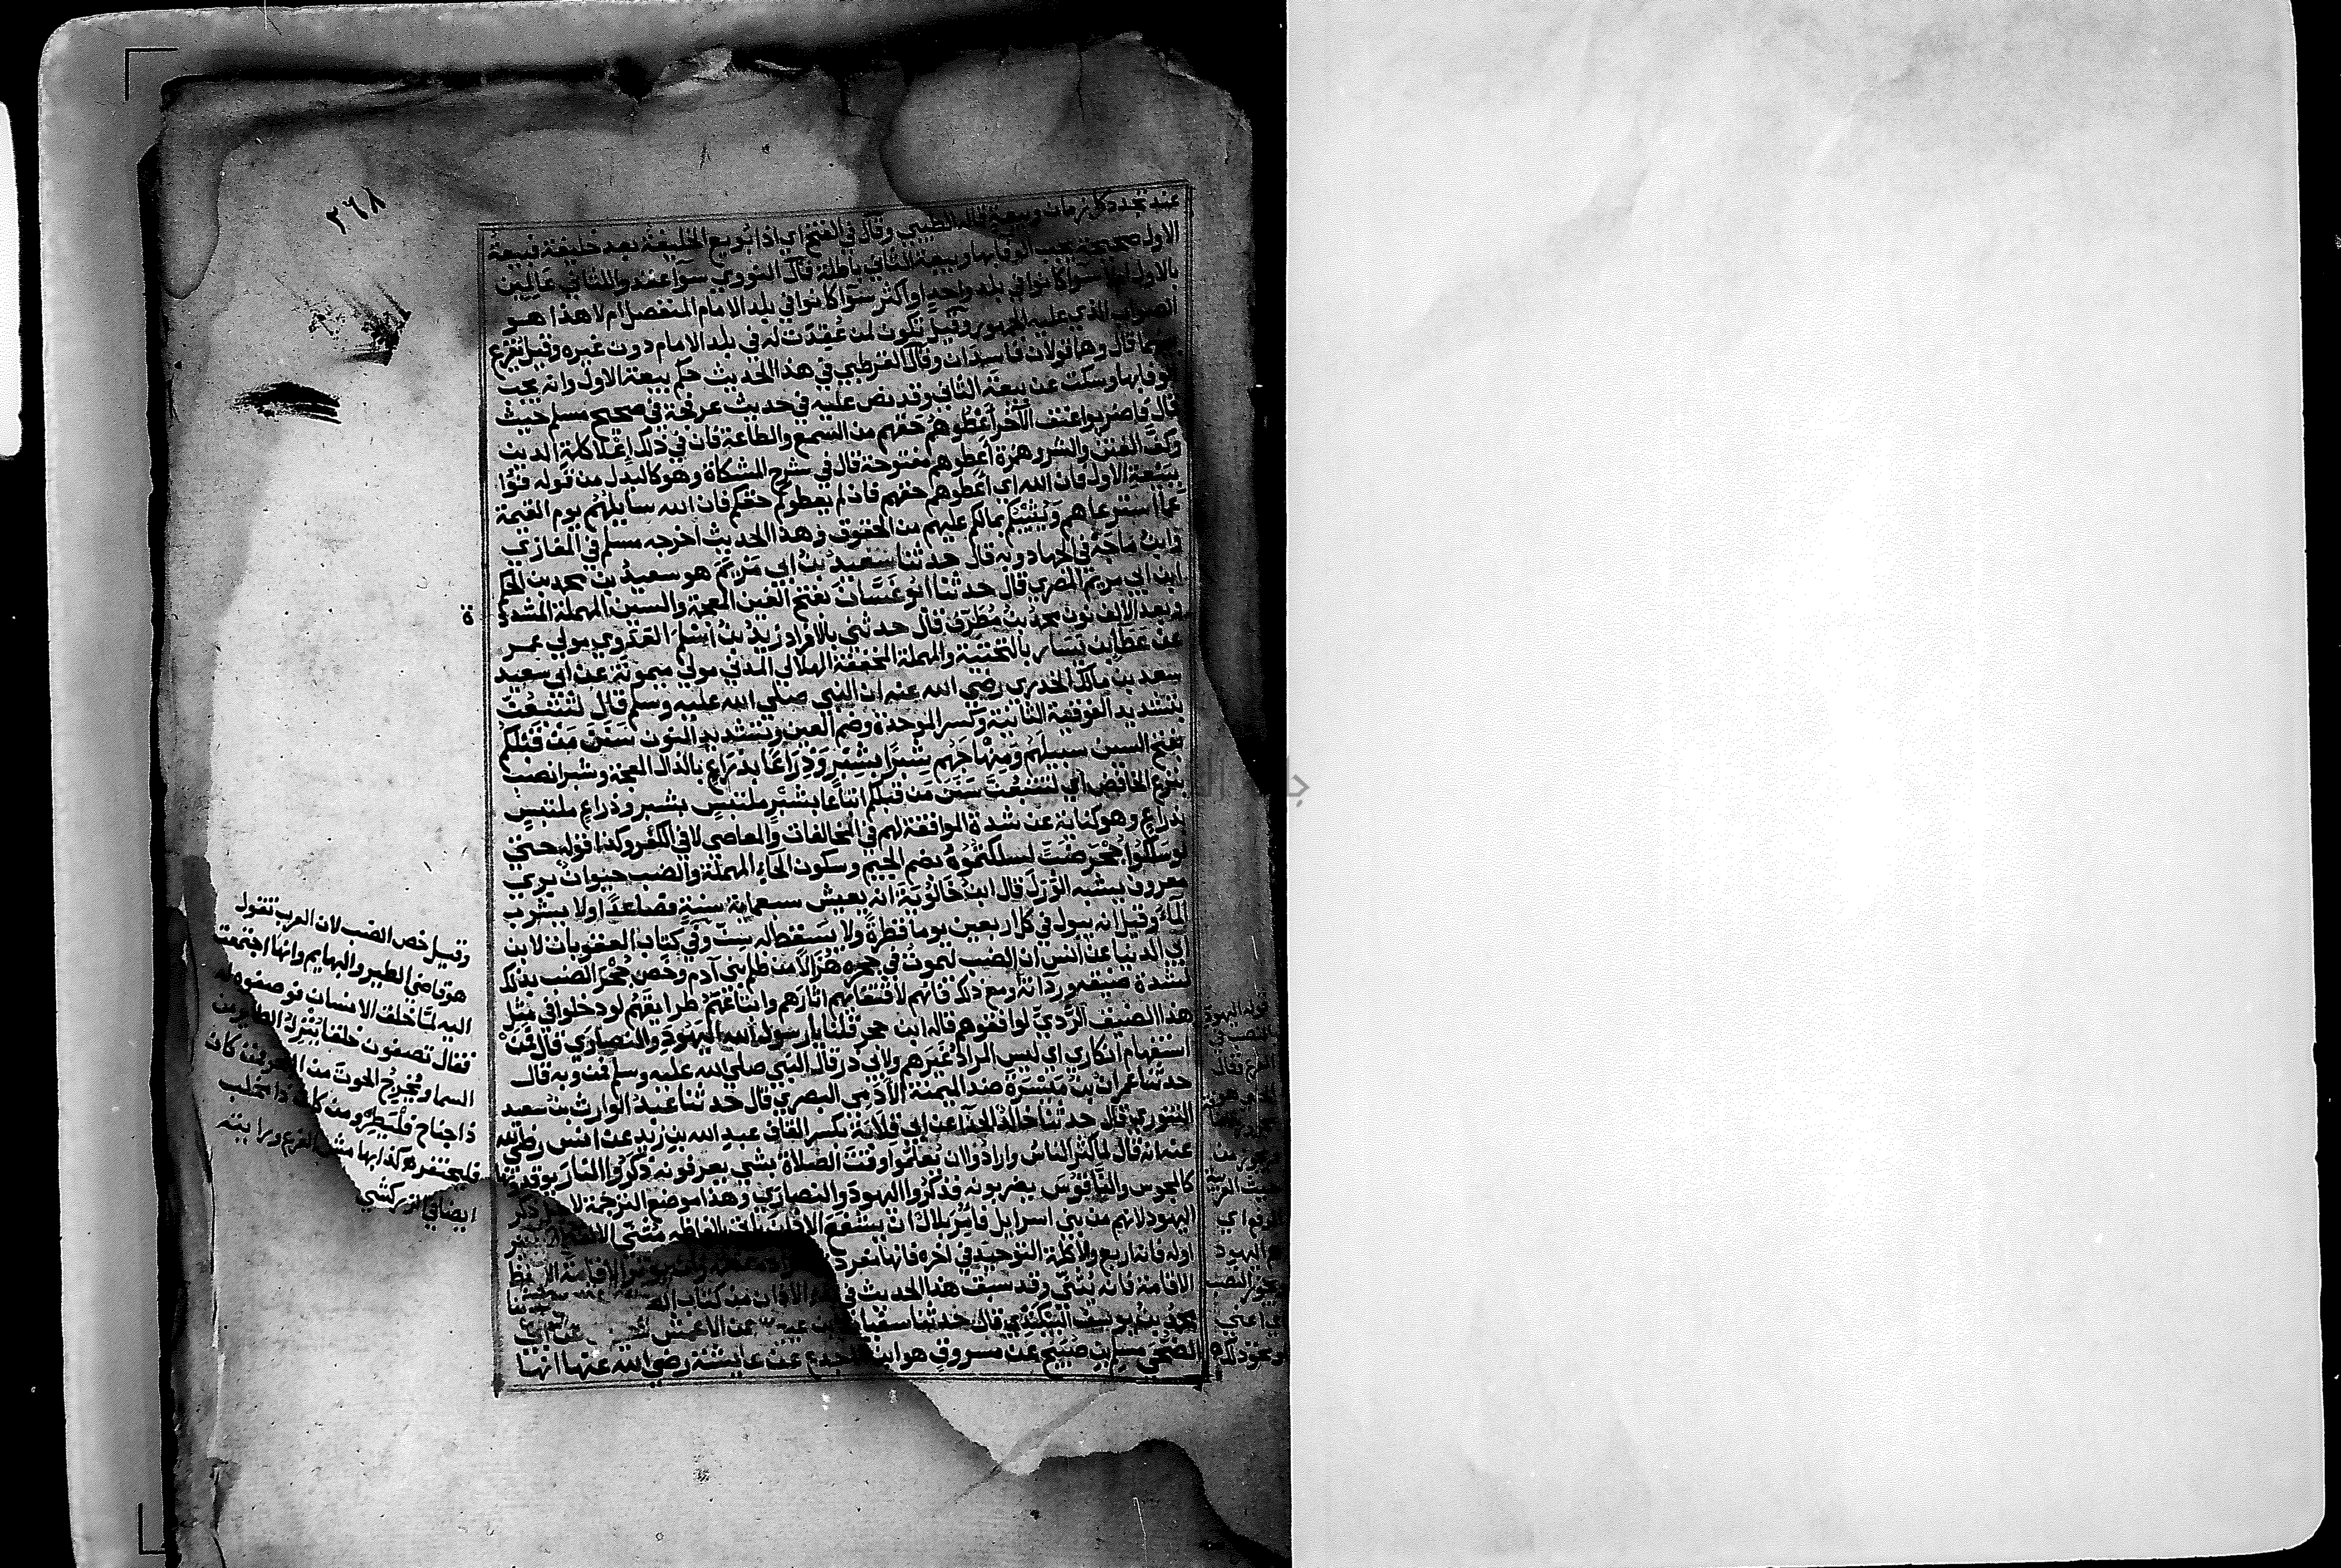 ٢٦٨
عند تجدد كل زمان وبيعة قاله الطيبي وقال في الفتح اي اذا بويع الخليفة بعد خليفة فبيعة
الاول صحيحة يجب الوفا بها وبيعة الثاني باطلة قال النووي سوا عقدوا للثاني عالمين
بالاول ام لا سوا كانوا في بلد واحد او اكثر سوا كانوا في بلد الامام المنفصل ام لا هذا هو
الصواب الذي عليه الجمهور وقيل تكون لمن عقدت له في بلد الامام دون غيره وقيل يقرع
بينهما قال وهما قولان فاسدان وقال القرطبي في هذا الحديث حكم بيعة الاول وانه يجب
الوفا بها وسكت عن بيعة الثاني وقد نص عليه في حديث عرفجة في صحيح مسلم حيث
قال فاضربوا عنق الآخر أعطوهم حقهم من السمع والطاعة فان في ذلك إعلا كلمة الدين
وكف الفتن والشر وهمزة أعطوهم مفتوحة قال في شرح المشكاة وهو كالبدل من قوله فوا
ببيعة الاول فان الله اي أعطوهم حقهم فان لم يعطوكم حقكم فان الله سايلهم يوم القيمة
عما استرعاهم ويثيبكم بمالكم عليهم من الحقوق وهذا الحديث اخرجه مسلم في المغازي
وابن ماجة في الجهاد وبه قال حدثنا سعيد بن ابي مريم هو سعيد بن محمد بن الحكم
ابن ابي مريم المصري قال حدثنا ابو غسان بفتح الغين المعجمة والسين المهملة المشدد
ة
وبعد الالف نون محمد بن مطرف قال حدثني بالافراد زيد بن اسلم العدوي مولي عمر
عن عطا بن يسار بالتحتية والمهملة المخففة الهلالي المدني مولي ميمونة عن ابي سعيد
سعد بن مالك الخدري رضي الله عنه ان النبي صلي الله عليه وسلم قال لتتبعن
بتشديد الفوقية الثانية وكسر الموحدة وضم العين وتشديد النون سنن من قبلكم
بفتح السين سبيلهم ومنهاجهم شبرا بشبر وذراعا بذراع بالذال المعجمة وشبرا نصب
بنزع الخافض اي لتتبعن سنن من قبلكم اتباعا بشبر ملتبس بشبر وذراع ملتبس
بذراع وهو كناية عن شدة الموافقة لهم في المخالفات والمعاصي لا في الكفر وكذا قوله حتي
لو سلكوا جحر ضب لسلكتموه بضم الجيم وسكون الحاء المهملة والضب حيوان بري
معروف يشبه الورل قال ابن خالويه انه يعيش سبعماية سنة فصاعدا ولا يشرب
الماء وقيل انه يبول في كل اربعين يوما قطرة ولا يسقط له سن وفي كتاب العقوبات لابن
ابي الدنيا عن انس ان الضب ليموت في جحره هزالا من ظلم بني آدم وخص جحر الضب بذلك
لشدة ضيقه ورداته ومع ذلك فانهم لاقتفائهم اثارهم واتباعهم طرايقهم لو دخلوا في مثل
هذا الضيق الردي لوافقوهم قاله ابن حجر قلنا يا رسول الله اليهود والنصاري قال فمن
استفهام انكاري اي ليس المراد غيرهم ولابي ذر قال النبي صلي الله عليه وسلم فمن وبه قال
حدثنا عمران بن ميسرة ضد الميمنة الادمي البصري قال حدثنا عبد الوارث بن سعيد
التنوري قال حدثنا خالد الحذا عن ابي قلابة بكسر القاف عبد الله بن زيد عن انس رضي الله
عنه انه قال لما كثر الناس وارادوا ان يعلموا وقت الصلاة بشي يعرفونه ذكروا النار يوقدونها
كالمجوس والناقوس يضربونه فذكروا اليهود والنصاري وهذا موضع الترجمة لا
اليهود لانهم من بني اسرايل فامر بلال ان يشفع الاذان
اوله فانه اربع والا كلمة التوحيد في اخره فانها مفردة وان يوتر الاقامة الا
الاقامة فانه يثني وقد سبق هذا الحديث في الاذان من كتاب
محمد بن يوسف البيكندي قال حدثنا سفيان عن الاعمش عن ابي
الضحي مسلم بن صبيح عن مسروق هو ابن الاجدع عن عايشة رضي الله عنها انها
وقيل خص الضب لان العرب تقول
هو قاضي الطير والبهايم وانها اجتمعت
اليه لما خلق الانسان فوصفوه له
فقال تصفون خلقا ينزل الطاير من
السما ويخرج الحوت من فمن كان
ذا جناح فليطر ومن كان ذا مخلب
فليحتفر
ايضا في الزركشي
قوله اليهود